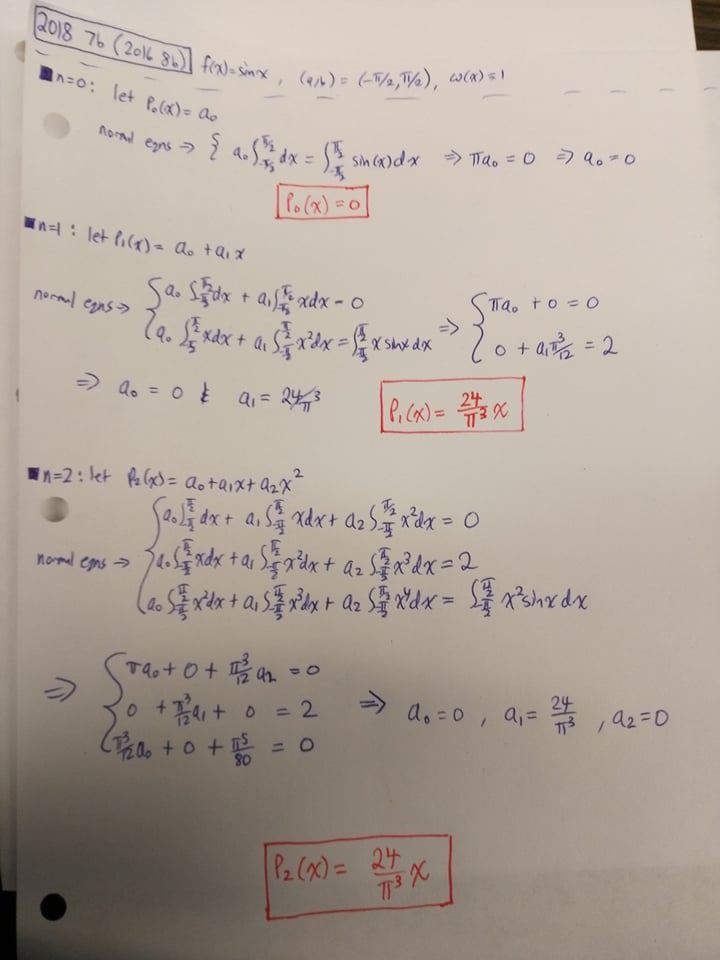 2018 7b (2016 8b) f(x)=sinx , (a,b) = (-π/2, π/2), ω(x)=1
n=0: let P₀(x) = a₀
normal eqns → { a₀∫_{-π/2}^{π/2} dx = ∫_{-π/2}^{π/2} sin(x)dx ⇒ πa₀ = 0 ⇒ a₀=0
P₀(x)=0
n=1: let P₁(x) = a₀ + a₁x
normal eqns → { a₀∫_{-π/2}^{π/2} dx + a₁∫_{-π/2}^{π/2} xdx = 0
a₀∫_{-π/2}^{π/2} xdx + a₁∫_{-π/2}^{π/2} x²dx = ∫_{-π/2}^{π/2} x sinx dx ⇒ { πa₀ + 0 = 0
0 + a₁π³/12 = 2
⇒ a₀ = 0 & a₁ = 24/π³
P₁(x) = 24/π³ x
n=2: let P₂(x) = a₀+a₁x+a₂x²
normal eqns → { a₀∫_{-π/2}^{π/2} dx + a₁∫_{-π/2}^{π/2} xdx + a₂∫_{-π/2}^{π/2} x²dx = 0
a₀∫_{-π/2}^{π/2} xdx + a₁∫_{-π/2}^{π/2} x²dx + a₂∫_{-π/2}^{π/2} x³dx = 2
a₀∫_{-π/2}^{π/2} x²dx + a₁∫_{-π/2}^{π/2} x³dx + a₂∫_{-π/2}^{π/2} x⁴dx = ∫_{-π/2}^{π/2} x²sinx dx
⇒ { πa₀ + 0 + π³/12 a₂ = 0
0 + π³/12 a₁ + 0 = 2 ⇒ a₀=0 , a₁ = 24/π³ , a₂=0
π³/12 a₀ + 0 + π⁵/80 = 0
P₂(x) = 24/π³ x